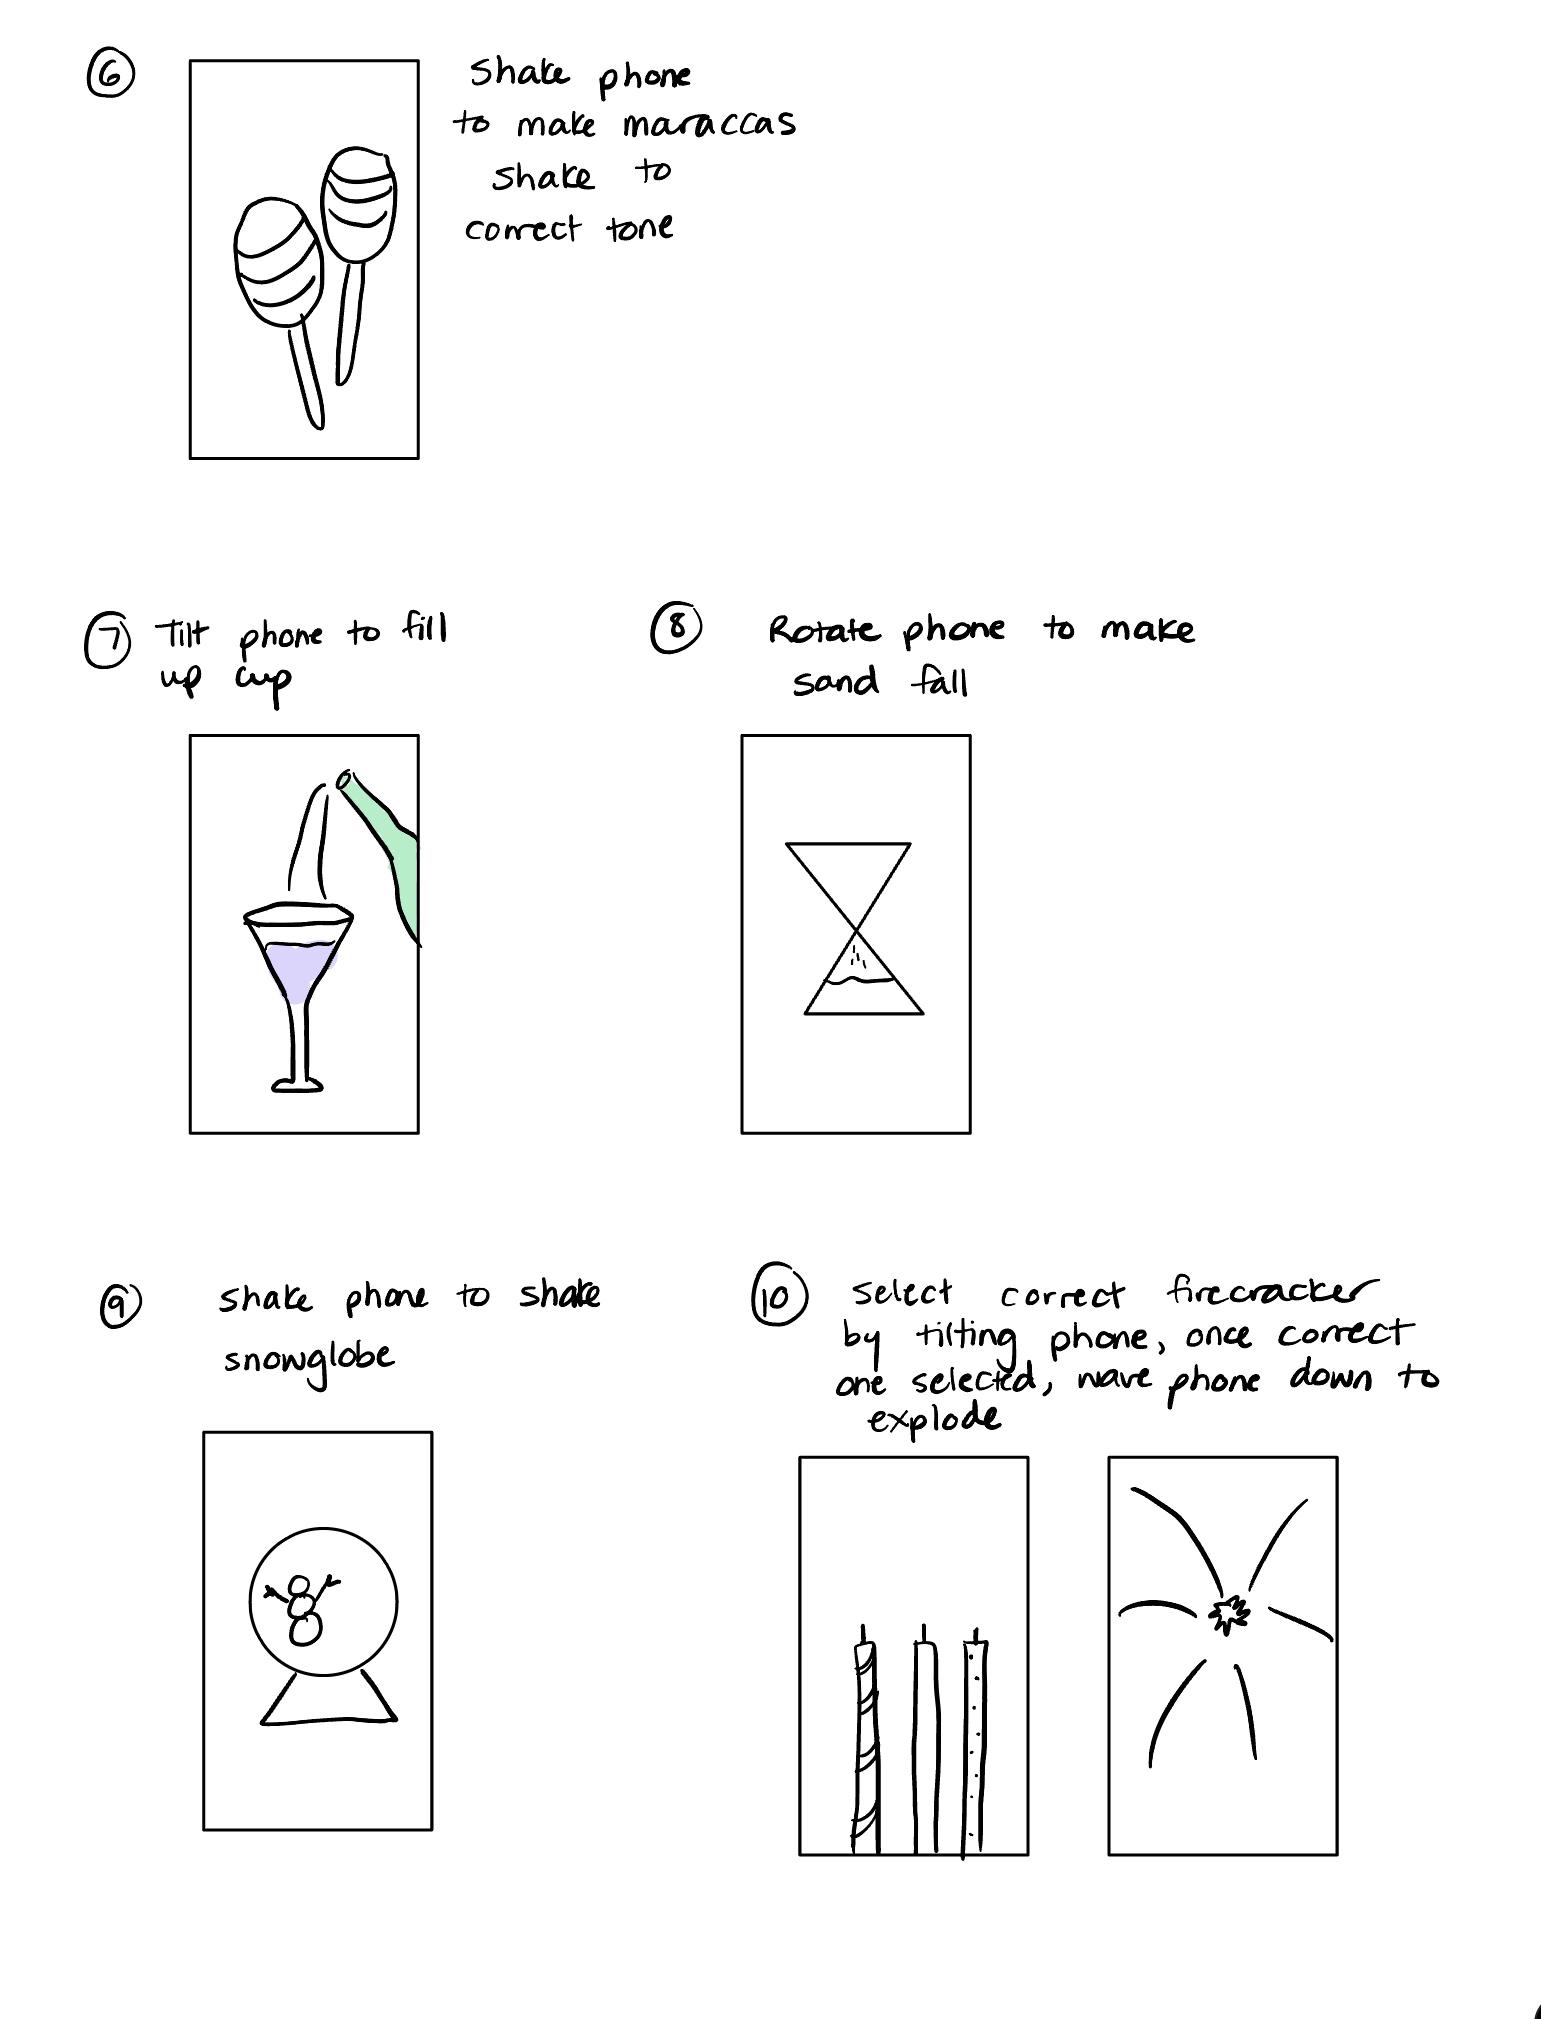 6
Shake phone
to make maraccas
shake to
correct tone
7 Tilt phone to fill
up cup
8 Rotate phone to make
sand fall
9 Shake phone to shake
snowglobe
10 select correct firecracker
by tilting phone, once correct
one selected, wave phone down to
explode